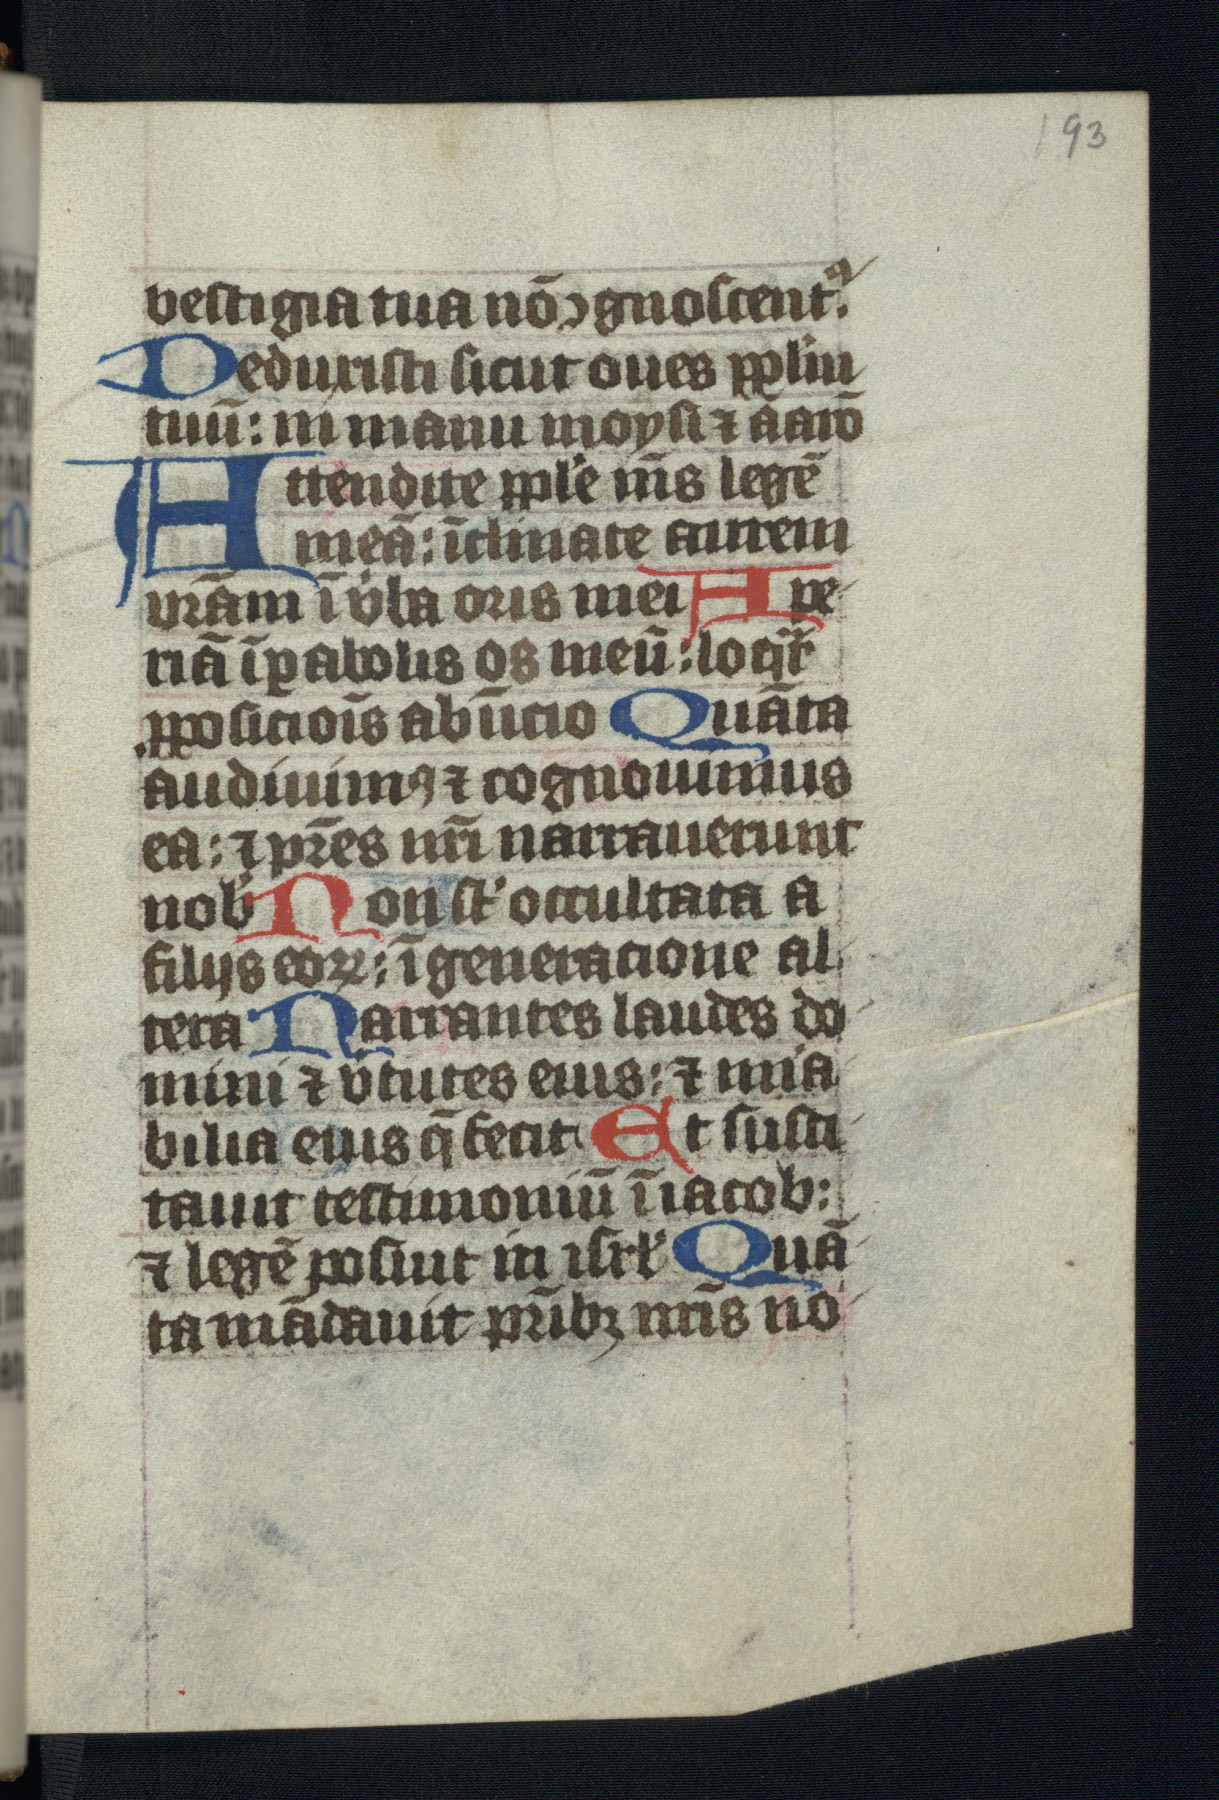 193
vestigia tua nō ꝯgnoscentᷣ.
Deduxisti sicut oues pplm̄
tuū: in manu moysi ⁊ aarō
Attendite pple m̄s legē
meā: īclinate aurem
vrām ī v̓ba oris mei Ape
riā ī pabolis os meū: loqr̄
ꝓposiciōis ab īicio Quāta
audiuimꝰ ⁊ cognouimus
ea: ⁊ pr̄es nr̄i narrauerunt
nob̓ Non st̓ occultata a
filijs eoꝝ: ī generacione al
tera Narrantes laudes do
mini ⁊ v̓tutes eius: ⁊ mīa
bilia eius q̄ fecit Et susci
tauit testimoniū ī iacob:
⁊ legē posiuit in isrl̓ Quā
ta mādauit pr̄ibꝫ nr̄is no